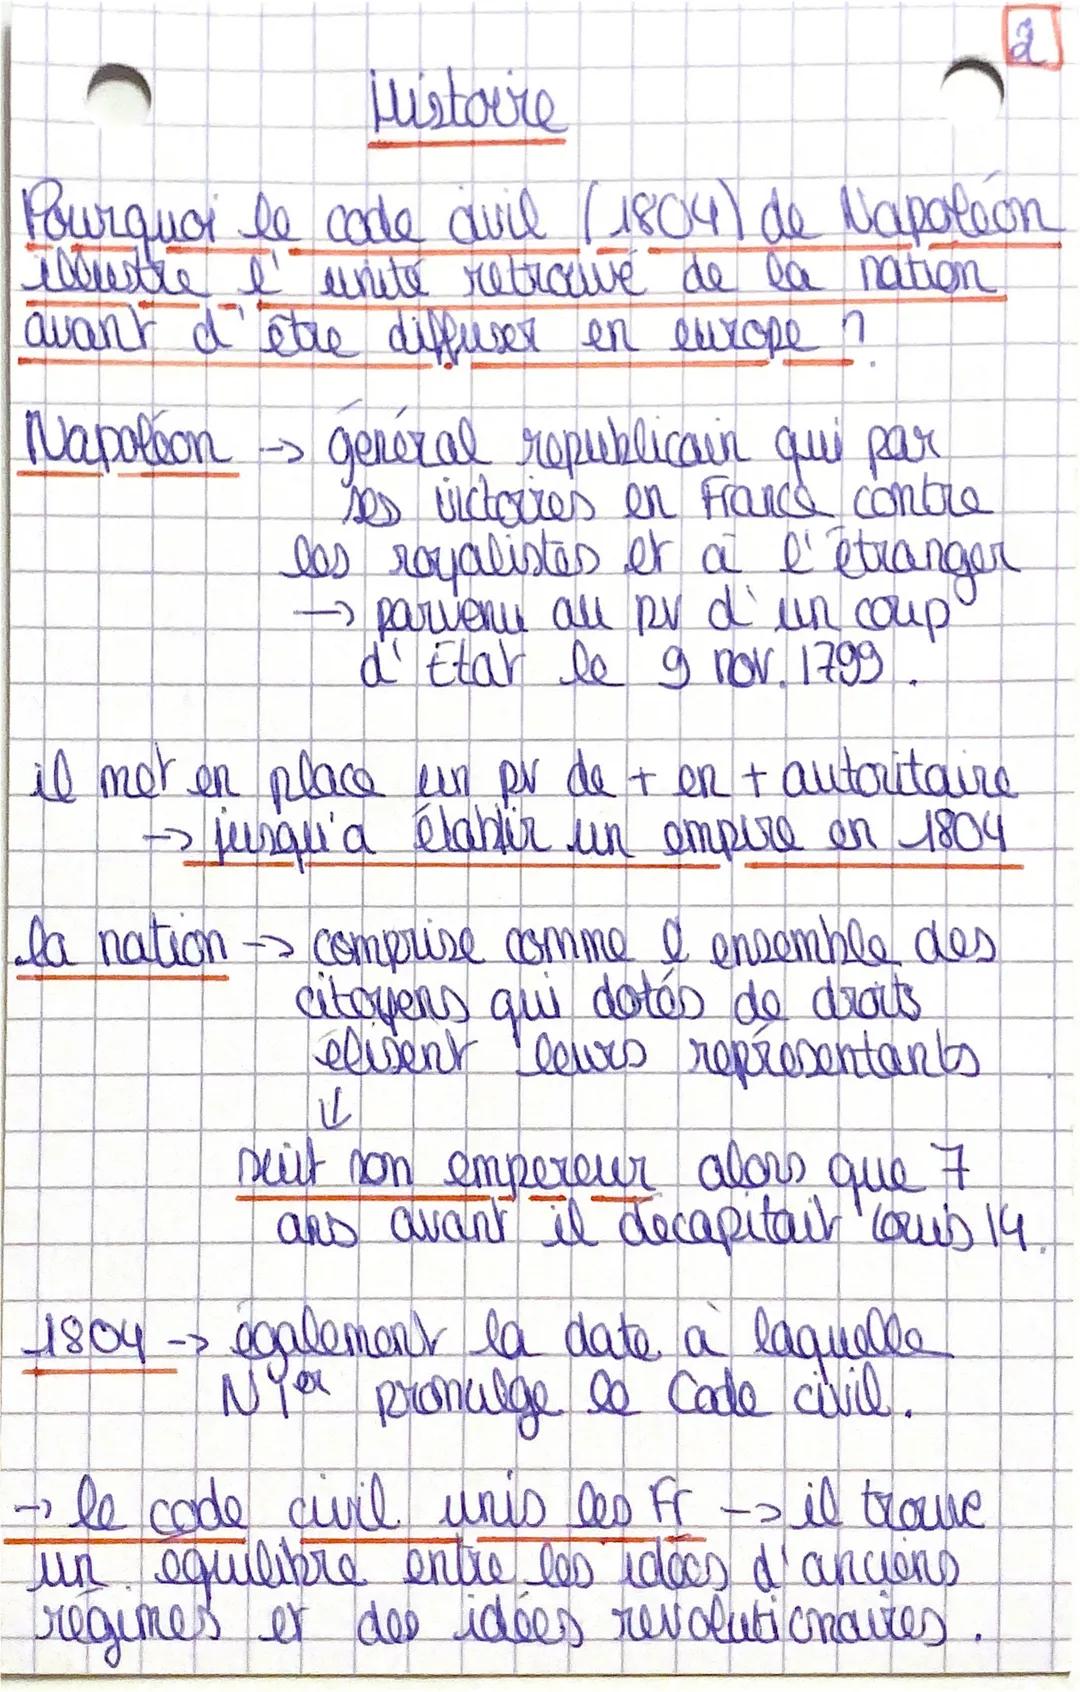 2
Histoire
Pourquoi le code civil (1804) de Napoléon
illustre l' unité retrouvé de la nation
avant d' être diffuser en europe ?
Napoléon -> général republicain qui par
ses victoires en France contre
les royalistes et à l' étranger
-> parvenu au pv d' un coup
d' Etat le 9 nov. 1799.
il met en place un pv de + en + autoritaire
-> jusqu'a établir un empire en 1804
la nation -> comprise comme l ensemble des
citoyens qui dotés de droits
elisent leurs représentants
↓
suit son empereur alors que 7
ans avant il decapitait Louis 14.
1804 -> également la date à laquelle
N 1er promulge le Code civil.
-> le code civil unis les Fr -> il trouve
un équilibre entre les idées d'anciens
régimes et des idées revolutionnaires.